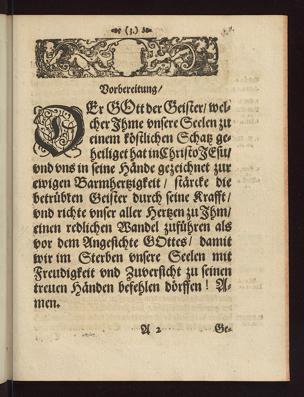 (1.)
Vorbereitung/
DEr GOtt der Geister/ wel-
cher Ihme vnsere Seelen zu
einem köstlichen Schatz ge-
heiliget hat in Christo JEsu/
vnd vns in seine Hände gezeichnet zur
ewigen Barmhertzigkeit / stärcke die
betrübten Geister durch seine Krafft/
vnd richte vnser aller Hertzen zu Ihm/
einen redlichen Wandel zuführen als
vor dem Angesichte GOttes/ damit
wir im Sterben vnsere Seelen mit
Freudigkeit vnd Zuversicht zu seinen
treuen Händen befehlen dörffen! A-
men.
A 2 Ge-